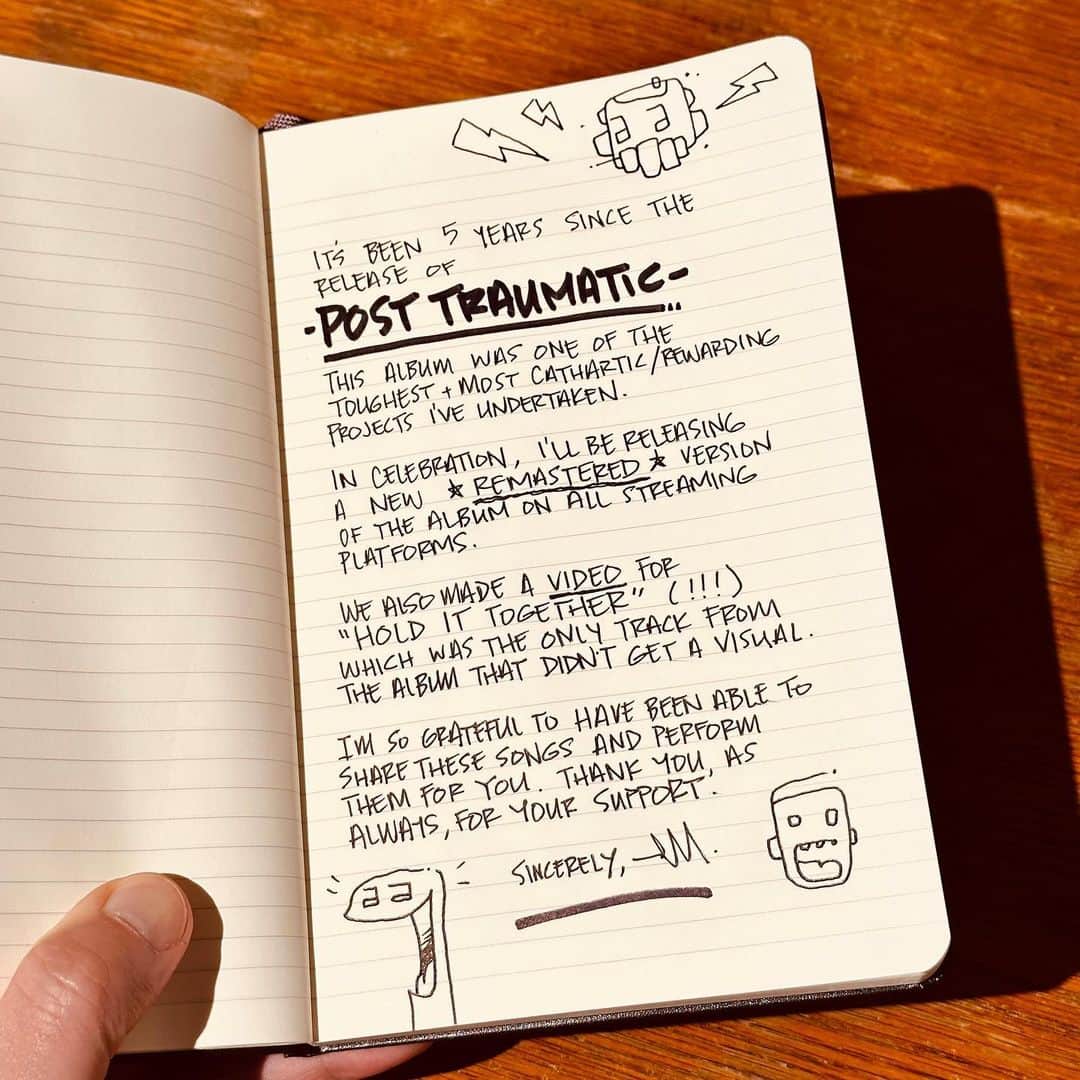 IT'S BEEN 5 YEARS SINCE THE
RELEASE OF
-POST TRAUMATIC-
THIS ALBUM WAS ONE OF THE
TOUGHEST + MOST CATHARTIC/REWARDING
PROJECTS I'VE UNDERTAKEN.
IN CELEBRATION, I'LL BE RELEASING
A NEW ★ REMASTERED ★ VERSION
OF THE ALBUM ON ALL STREAMING
PLATFORMS.
WE ALSO MADE A VIDEO FOR
"HOLD IT TOGETHER" (!!!)
WHICH WAS THE ONLY TRACK FROM
THE ALBUM THAT DIDN'T GET A VISUAL.
I'M SO GRATEFUL TO HAVE BEEN ABLE TO
SHARE THESE SONGS AND PERFORM
THEM FOR YOU. THANK YOU, AS
ALWAYS, FOR YOUR SUPPORT.
SINCERELY,